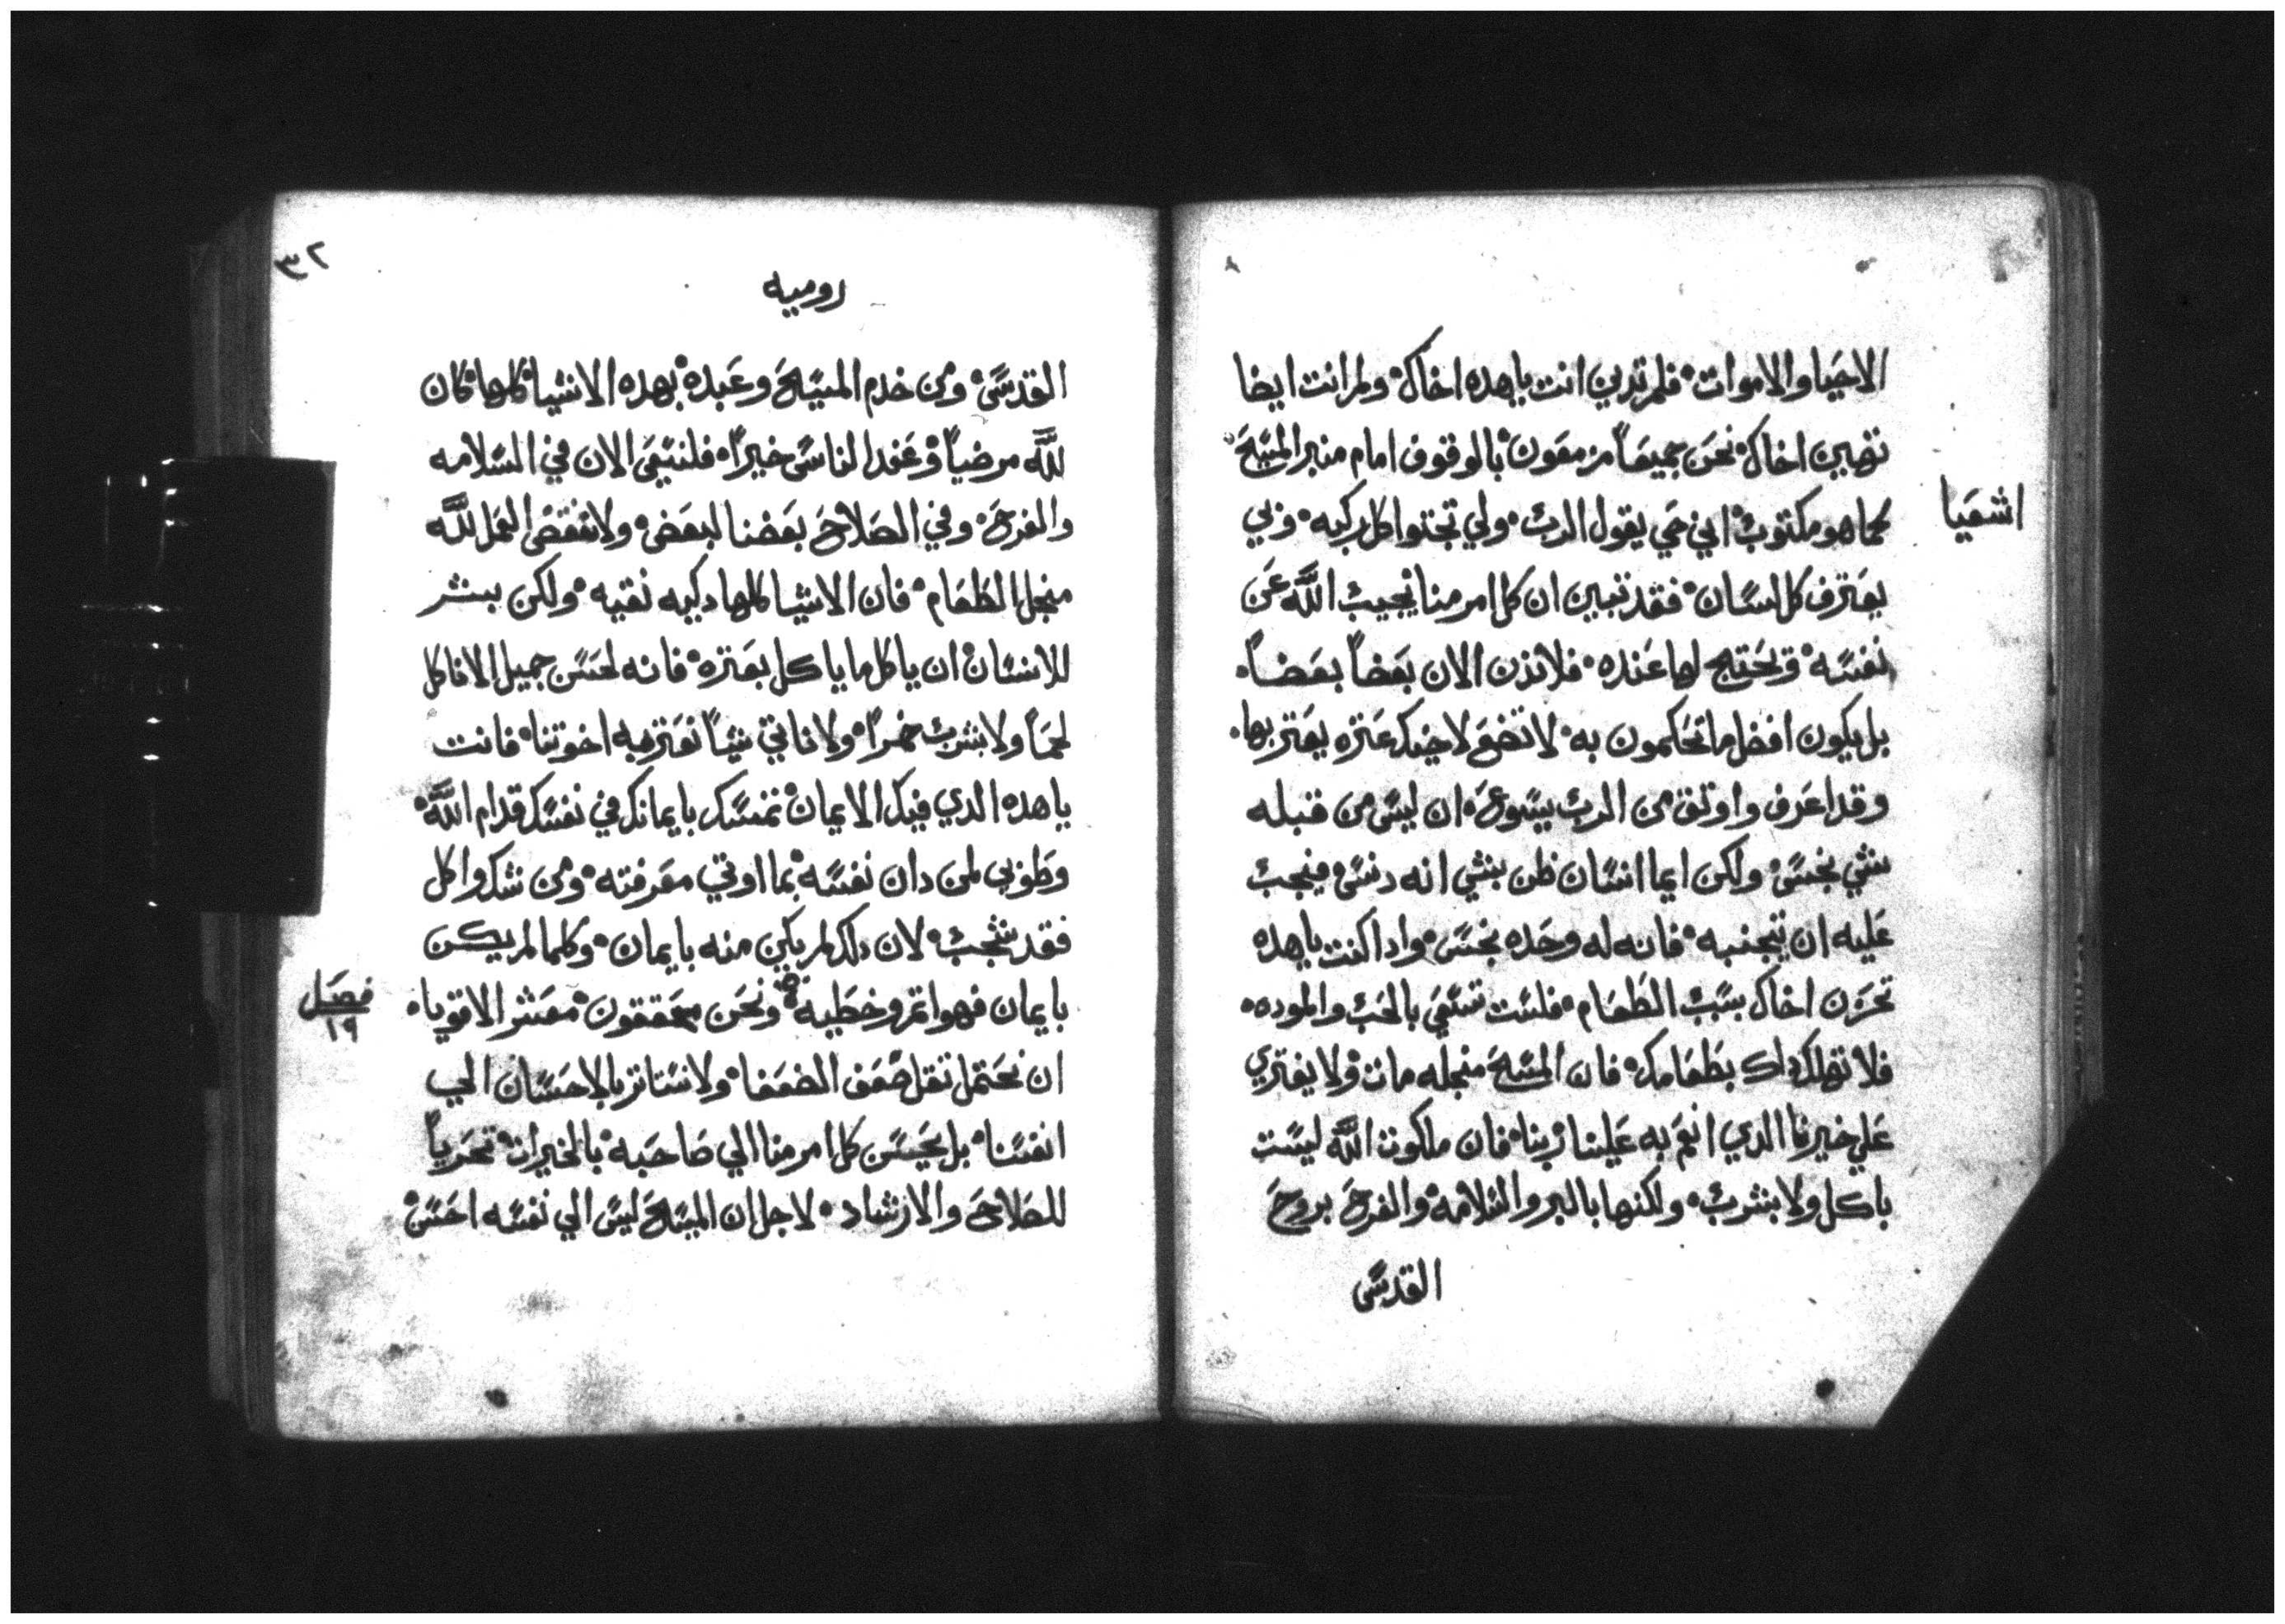 الاحيا والاموات فلم تدين انت ياهده اخاك ولم انت ايضا
تهين اخاك نحن جميعاً مزمعون بالوقوف امام منبر المسيح
اشعيا
كما هو مكتوب اني حي يقول الرب ولي تجتوا كل ركبه وبي
يعترف كل لسان فقد تبين ان كل امر منا يجيب الله عن
نفسه ويحتج لها عنده فلا ندن الان بعضاً بعضاً
بل يكون افضل ما تحاكمون به لا تضع لاخيك عتره يعتر بها
وقد اعرف واوتق من الرب يسوع ان ليس من قبله
شي نجس ولكن ايما انسان ظن بشي انه دنس فيجب
عليه ان يتجنبه فانه له وحده نجس وادا كنت ياهده
تحزن اخاك بسبب الطعام فلست تسعي بالحب والموده
فلا تهلك داك بطعامك فان المسيح منجله مات ولا يفتري
علي خيرنا الدي انعم به علينا ربنا فان ملكوت الله ليست
باكل ولا بشرب ولكنها بالبر والسلامه والفرح بروح
القدس
٣٢
روميه
القدس ومن خدم المسيح وعبده بهده الاشيا كلها كان
لله مرضياً وعند الناس خيراً فلنسعي الان في السلامه
والفرح وفي الصلاح بعضنا لبعض ولا ننقض العمل لله
منجل الطعام فان الاشيا كلها دكيه نقيه ولكن بيشر
للانسان ان ياكل ما ياكل بعتره فانه لحسن جميل الا ناكل
لحماً ولا نشرب خمراً ولا ناتي شياً نعتر به اخوتنا فانت
ياهده الدي فيك الايمان تمسك بايمانك في نفسك قدام الله
وطوبي لمن دان نفسه بما اوتي معرفته ومن شك واكل
فقد شجب لان دلك لم يكن منه بايمان وكلما لم يكن
بايمان فهو اتم وخطيه ونحن محققون معشر الاقويا
فصل
١٩
ان نحتمل تقل ضعف الضعفا ولا نستاتر بالاحسان الي
انفسنا بل يحسن كل امر منا الي صاحبه بالخيرات تحرياً
للصلاح والارشاد لاجل ان المسيح ليس الي نفسه احسن